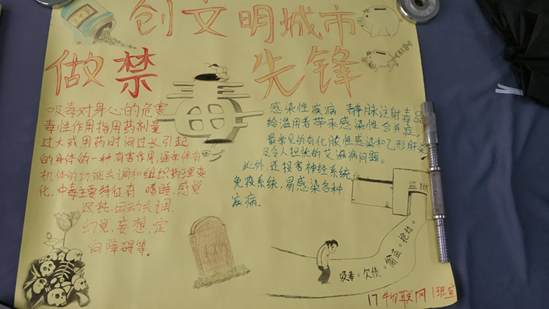 创文明城市
做禁先锋
吸毒对身心的危害
毒性作用指用药剂量
过大或用药时间过长引起
的身体的一种有害作用,通常伴有
机体的功能失调和组织病理变
化。中毒主要特征有:嗜睡、感觉
迟钝、运动失调、
幻觉、妄想、定
向障碍等。
感染性疾病 静脉注射毒品
给滥用者带来感染性合并症,
最常见的有化脓性感染和乙形肝炎
及令人担忧的艾滋病问题。
此外,还损害神经系统、
免疫系统,易感染各种
疾病。
吸毒。欠债。偷盗。抢劫。
17物联网1班宣